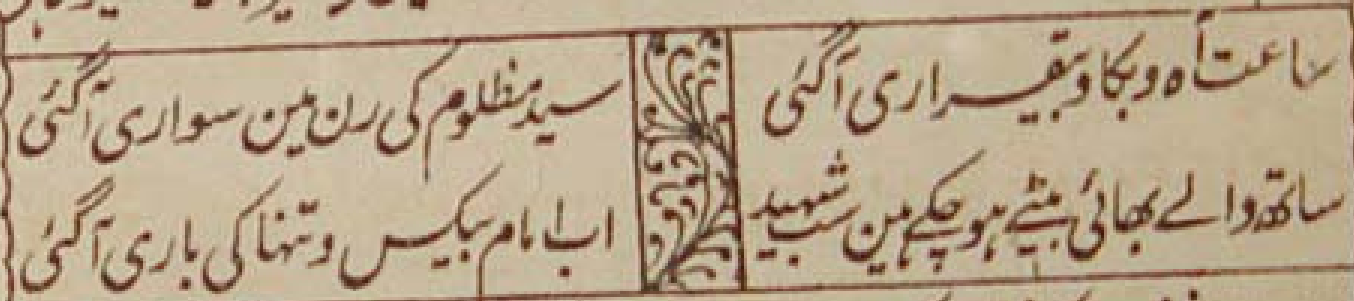 ساعت آہ و بکا و بیقراری آگئی
سید مظلوم کی رن مین سواری آگئی
ساتھ والے بھائی بیٹے ہو چکے ہین سب شہید
اب امام بیکس و تنہا کی باری آگئی